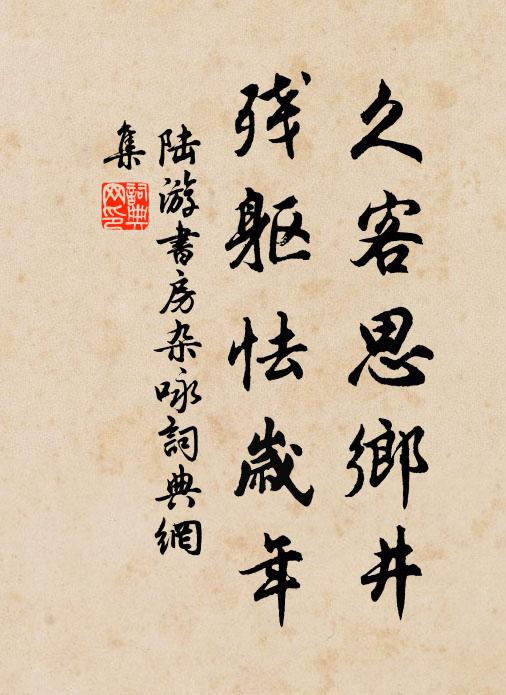 久客思鄉井
残軀怯歲年
陆游書房杂咏詞典網
集
詞典
网印